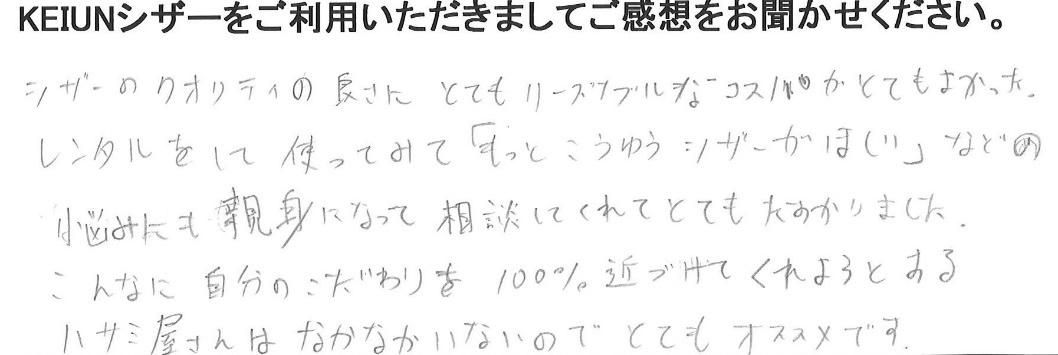 KEIUNシザーをご利用いただきましてご感想をお聞かせください。
シザーのクオリティの良さに とてもリーズナブルなコスパがとてもよかった.
レンタルをして 使ってみて「もっと こうゆう シザーがほしい」などの
悩みにも 親身になって 相談してくれてとても たすかりました.
こんなに 自分の こだわりを 100% 近づけて くれようとする
ハサミ屋さんは なかなかいないので とても オススメです.